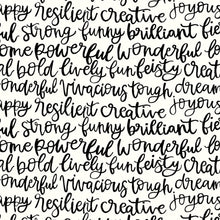 joyous
appy resilient creative
ul strong funny brilliant fie
ome powerful wonderful lo
al bold lively fun feisty crea
onderful vivacious tough dream
joyous
appy resilient creative
ul strong funny brilliant fie
ome powerful wonderful lo
al bold lively fun feisty crea
onderful vivacious tough dream
joyous
appy resilient creative